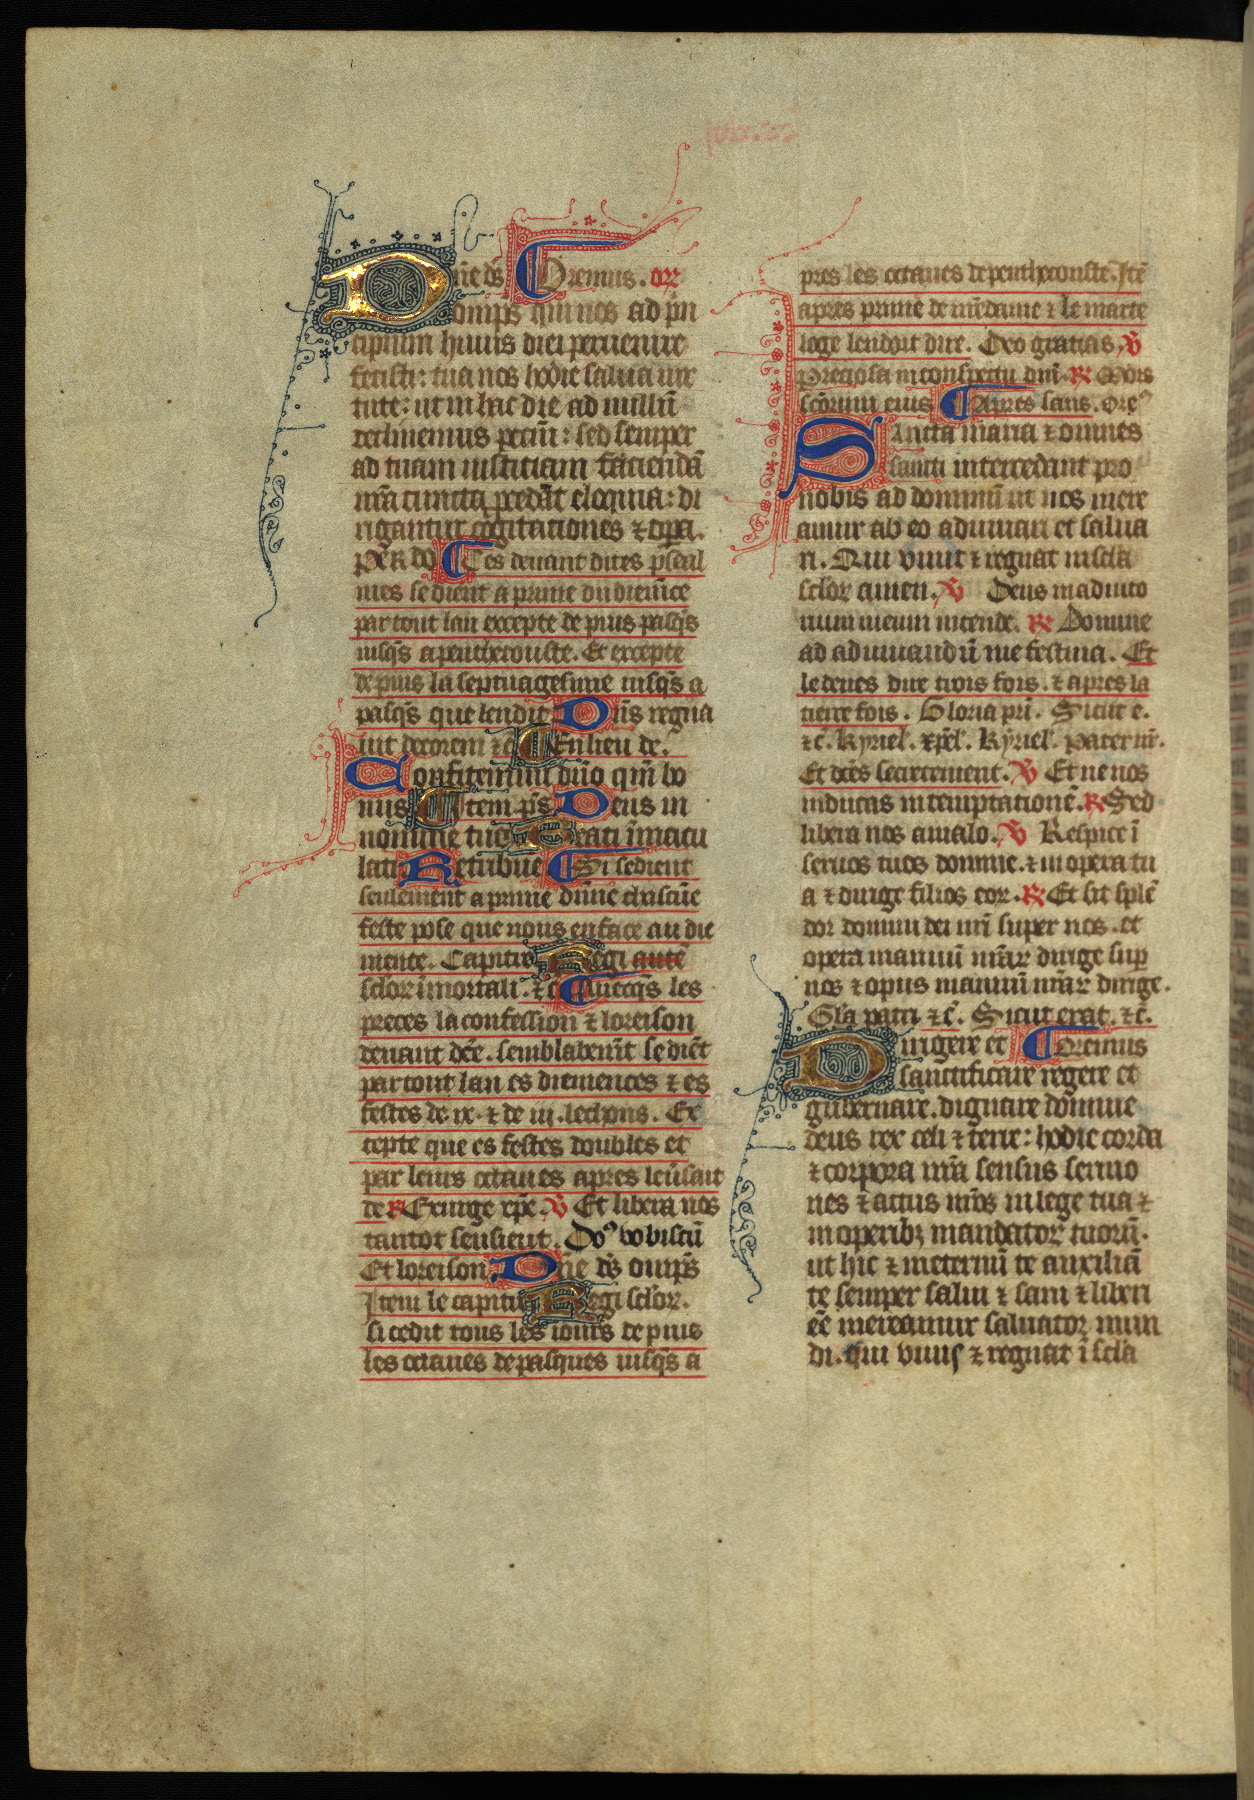 Dñe ds Oremus. or
omips qui nos ad pn
cipium huius diei peruenire
fecisti: tua nos hodie salua uir
tute: ut in hac die ad nullũ
declinemus peccm̃: sed semper
ad tuam iusticiam faciendã
nr̃a cuncta procedãt eloquia: di
rigantur cogitationes ⁊ opa.
PER DO Ces deuant dites pseal
mes se dient a prime du diemce
par tout lan excepte de puis pasqs
iusqs a penthecouste. Et excepte
de puis la septuagesime iusqs a
pasqs que lendit Dñs regna
uit decorem ⁊c̃ En lieu de.
Confitemini dño qm̃ bo
nus Item ps Deus in
nomine tuo Beati immacu
lati Retribue Si se dient
seulement a prime dune chascũe
feste pose que nous en face au die
mence. Capitre Regi autẽ
sclor imortali. ⁊c̃ Auecqs les
preces la confession ⁊ loreison
deuant dce. semblablemt se diẽt
par tout lan es diemences ⁊ es
festes de ix. ⁊ de iii. lechons. Ex
cepte que es festes doubles et
par leurs octaues apres le vsait
de R Exurge xpe. V Et libera nos
tantot sensieut. Do⁹ vobiscũ
Et loreison Dñe ds omips
Item le capitre Regi sclor.
si cedit tous les iours de puis
les octaues de pasques iusqs a
pres les octaues de penthecouste. Itẽ
apres prime de nr̃e dame ⁊ le marte
loge lendoit dire. Deo gratias V
Preciosa in conspectu dnĩ. R Mors
scõrum eius Apres sans. Ore⁹
Sancta maria ⁊ omnes
sancti intercedant pro
nobis ad dominũ ut nos mere
amur ab eo adiuuari et salua
ri. Qui viuit ⁊ regnat in scla
sclor amen. V Deus in adiuto
rium meum intende. R Domine
ad adiuuandũ me festina. Et
le deues dire trois fois. ⁊ apres la
tierce fois. Gloria pri. Sicut e.
⁊c̃. Kyriel. xpel. Kyriel. Pater nr.
Et dces secretement. V Et ne nos
inducas in temptationẽ. R Sed
libera nos a malo. V Respice ĩ
seruos tuos domine. ⁊ in opera tu
a ⁊ dirige filios eor. R Et sit splẽ
dor domini dei nri super nos. et
opera manuũ nr̃ar dirige sup
nos ⁊ opus manuũ nr̃ar dirige.
Gla patri ⁊c̃. Sicut erat. ⁊c̃.
Dirigere et Oremus
sanctificare regere et
gubernare. dignare domine
deus rex celi ⁊ terre: hodie corda
⁊ corpora nr̃a sensus sermo
nes ⁊ actus nr̃os in lege tua ⁊
in operibꝫ mandator tuorũ.
ut hic ⁊ in eternũ te auxiliã
te semper salui ⁊ sani ⁊ liberi
eẽ mereamur saluator mun
di. Qui viuis ⁊ regnat ĩ scla